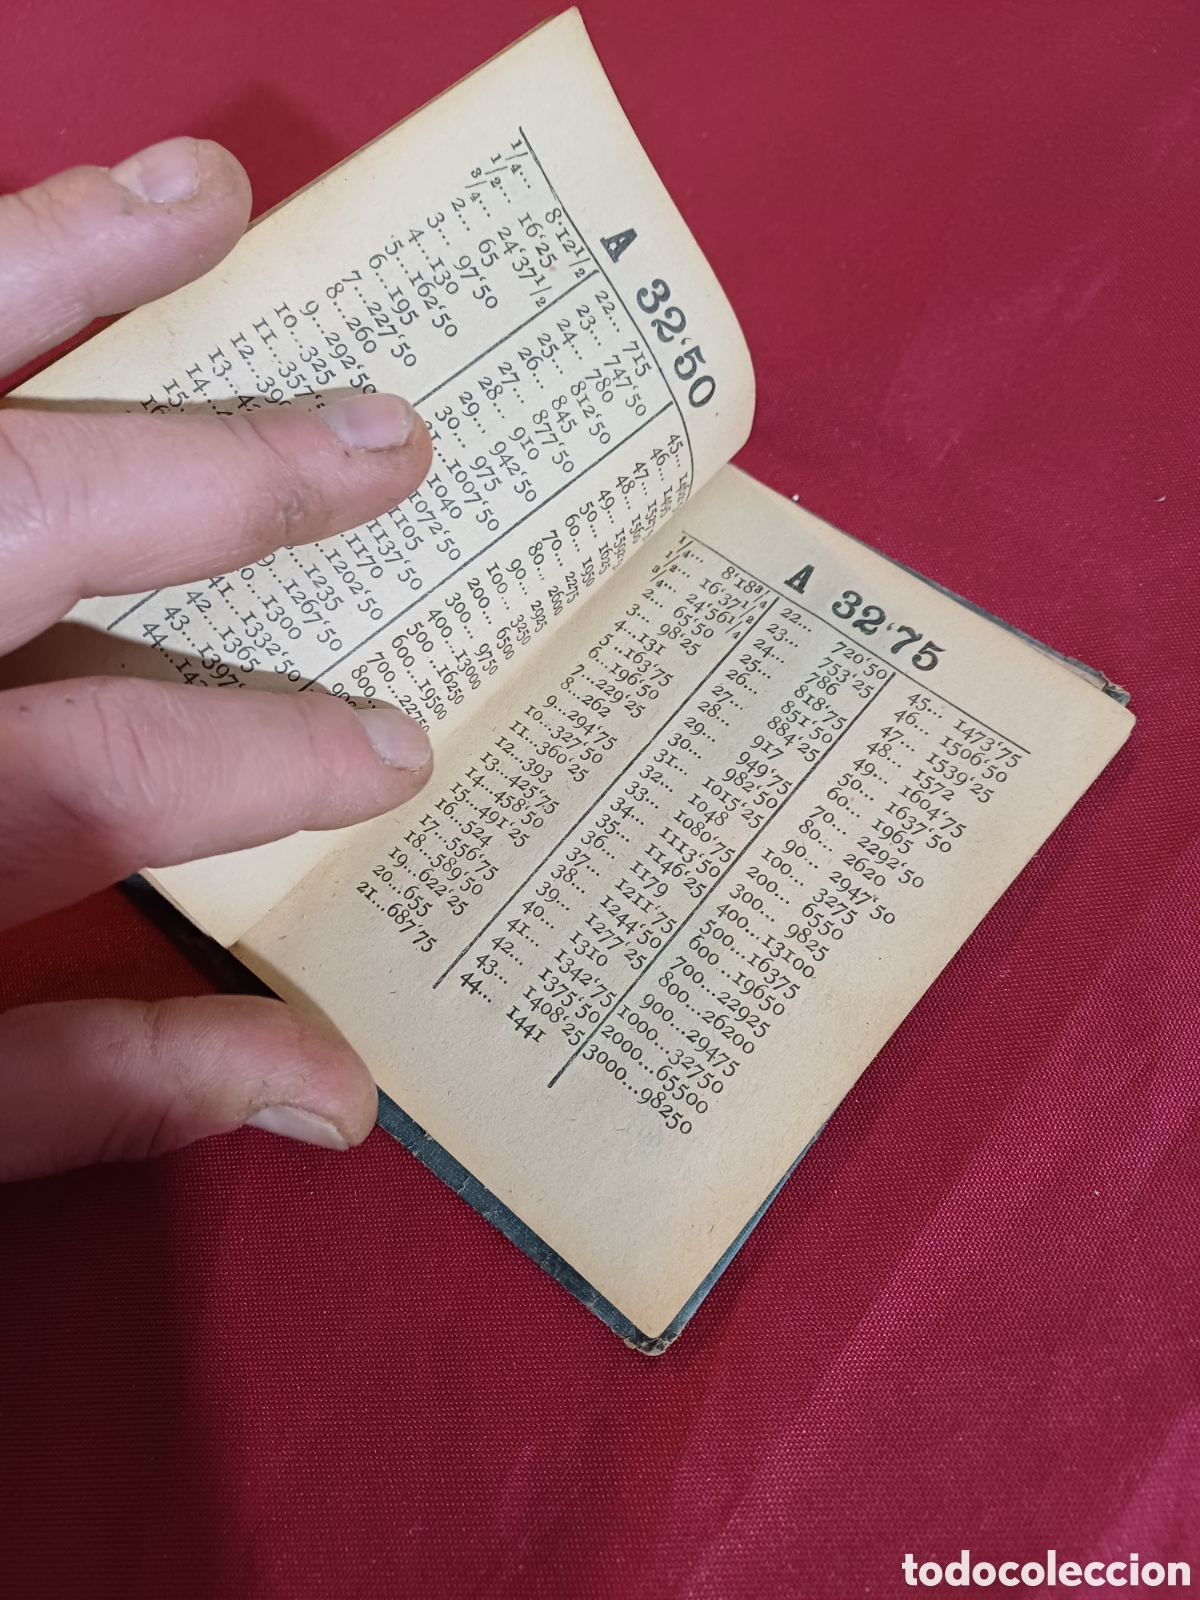 A 32‘50
1/4... 8‘12 1/2
1/2... 16‘25
3/4... 24‘37 1/2
2... 65
3... 97‘50
4...130
5...162‘50
6...195
7...227‘50
8...260
9...292‘50
10...325
11...357‘
12...
13...
14...
15...
22... 715
23... 747‘50
24... 780
25... 812‘50
26... 845
27... 877‘50
28... 910
29... 942‘50
30... 975
...1007‘50
1040
1072‘50
1105
1137‘50
1170
1202‘50
1235
1267‘50
1300
41...1332‘50
42...1365
43...1397‘
44...
45...
46... 1495
47...
48... 1560
49...
50... 1625
60... 1950
70... 2275
80... 2600
90... 2925
100... 3250
200... 6500
300... 9750
400...13000
500...16250
600...19500
700...22750
800...
A 32‘75
1/4... 8‘18 3/4
1/2... 16‘37 1/2
3/4... 24‘56 1/4
2... 65‘50
3... 98‘25
4...131
5...163‘75
6...196‘50
7...229‘25
8...262
9...294‘75
10...327‘50
11...360‘25
12...393
13...425‘75
14...458‘50
15...491‘25
16...524
17...556‘75
18...589‘50
19...622‘25
20...655
21...687‘75
22... 720‘50
23... 753‘25
24... 786
25... 818‘75
26... 851‘50
27... 884‘25
28... 917
29... 949‘75
30... 982‘50
31... 1015‘25
32... 1048
33... 1080‘75
34... 1113‘50
35... 1146‘25
36... 1179
37... 1211‘75
38... 1244‘50
39... 1277‘25
40... 1310
41... 1342‘75
42... 1375‘50
43... 1408‘25
44... 1441
45... 1473‘75
46... 1506‘50
47... 1539‘25
48... 1572
49... 1604‘75
50... 1637‘50
60... 1965
70... 2292‘50
80... 2620
90... 2947‘50
100... 3275
200... 6550
300... 9825
400...13100
500...16375
600...19650
700...22925
800...26200
900...29475
1000...32750
2000...65500
3000...98250
todocoleccion